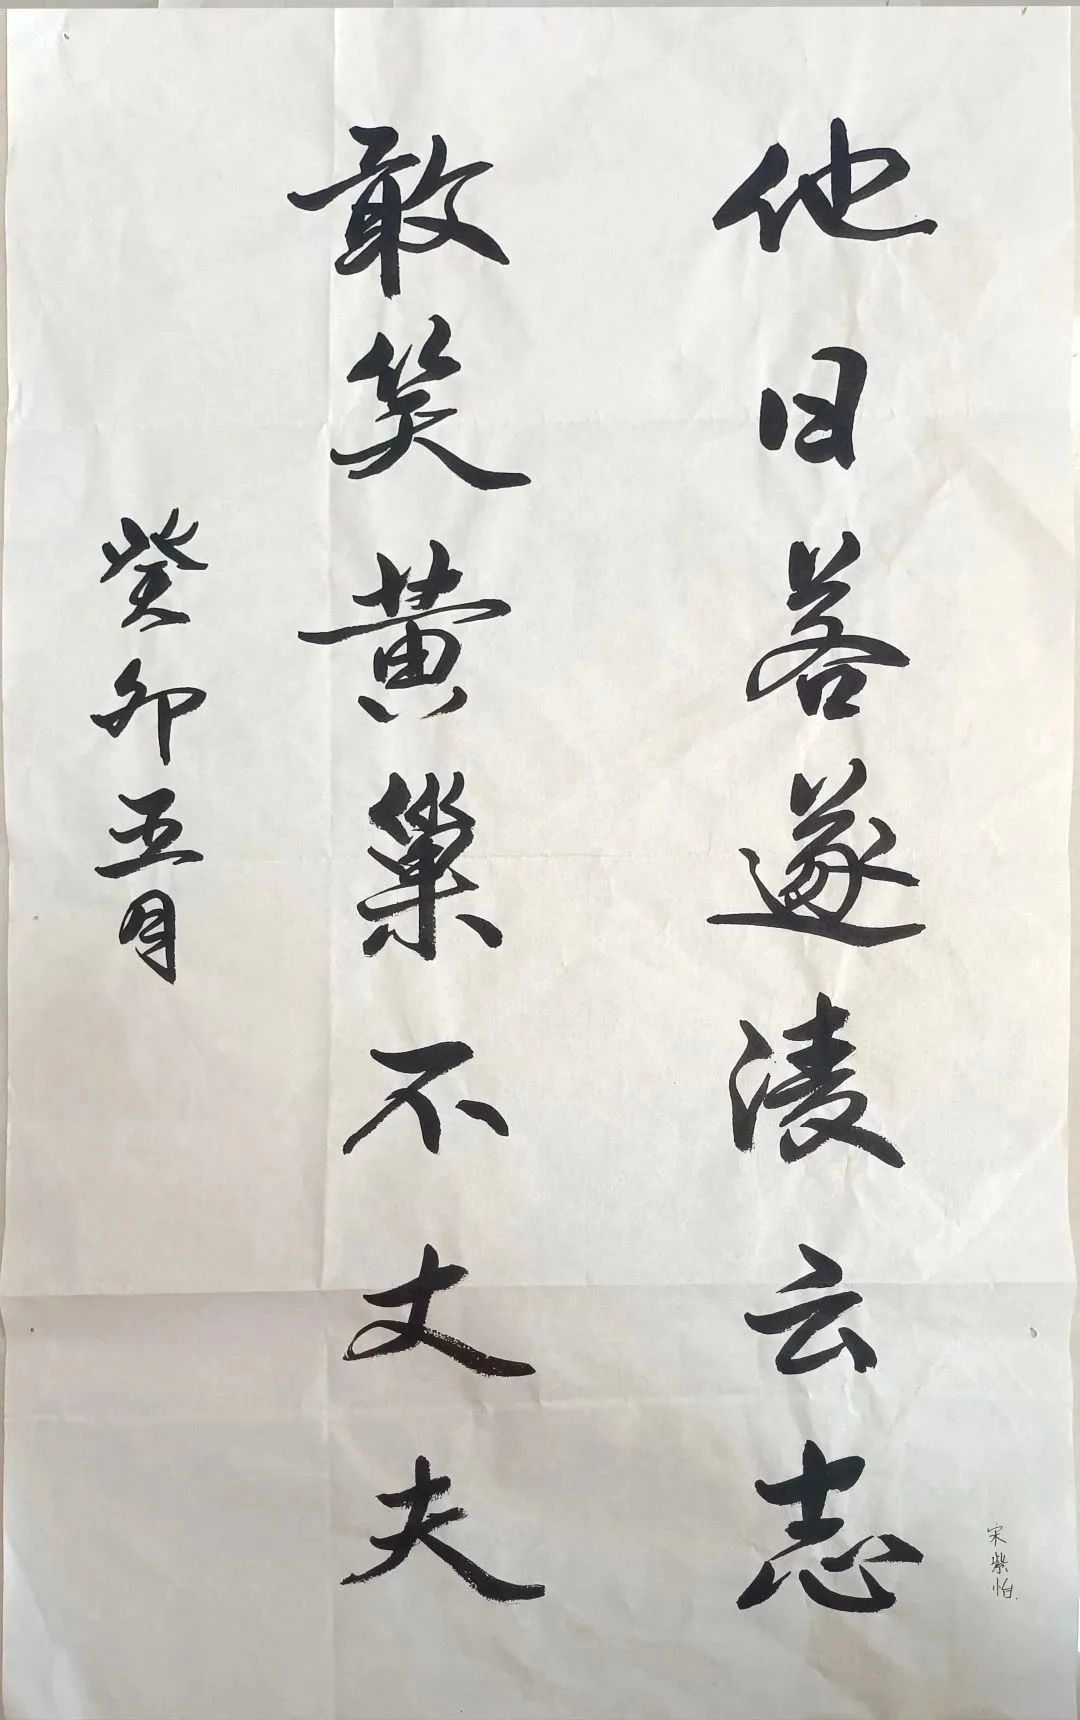 他日若遂凌云志
敢笑黄巢不丈夫
癸卯五月
宋紫怡